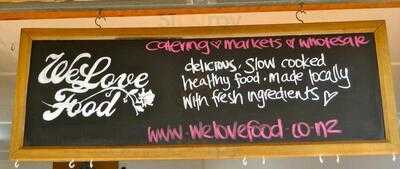 catering ♡ markets ♡ wholesale
We Love
Food
delicious, slow cooked
healthy food · made locally
with fresh ingredients ♡
www.welovefood.co.nz